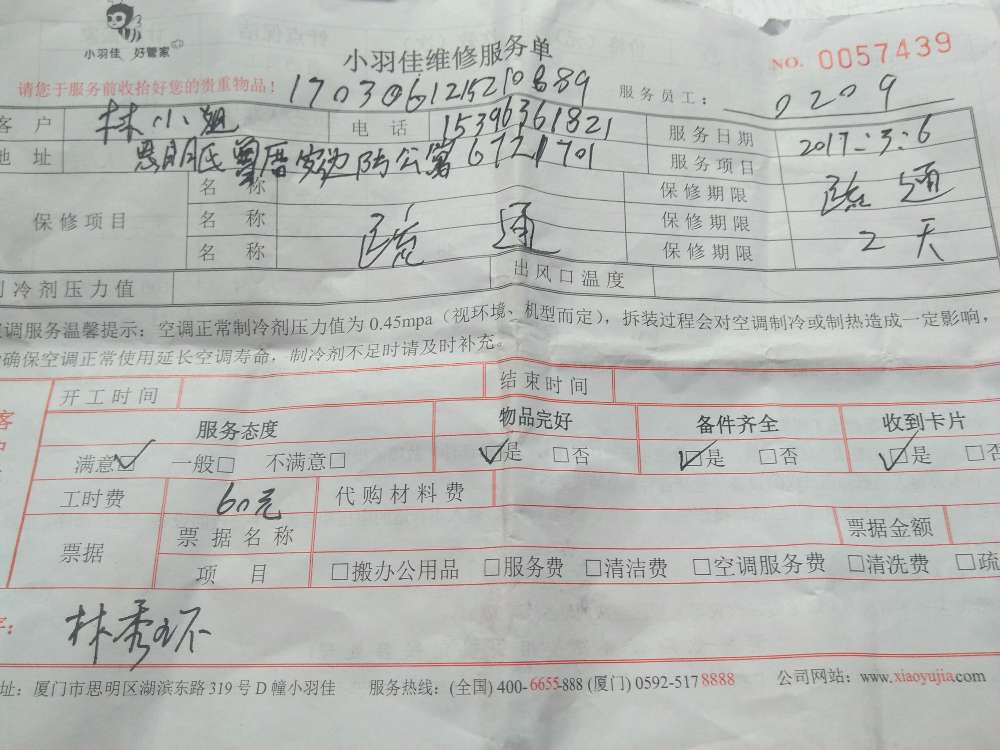 小羽佳 好管家
小羽佳维修服务单
NO. 0057439
请您于服务前收拾好您的贵重物品!
服务员工: 0209
客户 林小姐 电话 15396361821 服务日期 2017.3.6
地址 6721701 服务项目 疏通
保修项目 名称 保修期限
名称 疏通 保修期限 2天
名称 保修期限
制冷剂压力值 出风口温度
空调服务温馨提示: 空调正常制冷剂压力值为 0.45mpa(视环境、机型而定), 拆装过程会对空调制冷或制热造成一定影响,
确保空调正常使用延长空调寿命, 制冷剂不足时请及时补充。
开工时间 结束时间
服务态度 物品完好 备件齐全 收到卡片
满意☑ 一般□ 不满意□ ☑是 □否 ☑是 □否 ☑是 □否
工时费 60元 代购材料费
票据 票据名称 票据金额
项目 □搬办公用品 □服务费 □清洁费 □空调服务费 □清洗费 □疏
林秀环
址: 厦门市思明区湖滨东路 319 号 D 幢小羽佳 服务热线: (全国) 400-6655-888 (厦门) 0592-5178888 公司网站: www.xiaoyujia.com